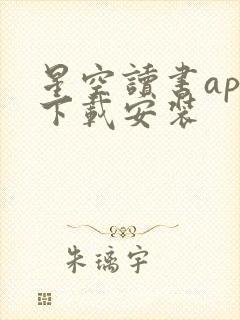 星空讀書ap
下載安裝
朱璃宇